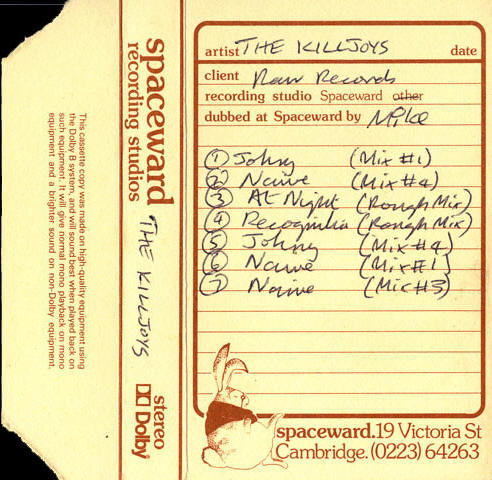 This cassette copy was made on high-quality equipment using
the Dolby B system, and will sound best when played back on
such equipment. It will give normal mono playback on mono
equipment and a brighter sound on non-Dolby equipment.
spaceward
recording studios
THE KILLJOYS
stereo
Dolby
artist THE KILLJOYS date
client Raw Records
recording studio Spaceward other
dubbed at Spaceward by Mike
① Johny (Mix #1)
② Naive (Mix #4)
③ At Night (Rough Mix)
④ (Rough Mix)
⑤ Johny (Mix #4)
⑥ Naive (Mix #1)
⑦ Naive (Mix #3)
spaceward. 19 Victoria St
Cambridge. (0223) 64263